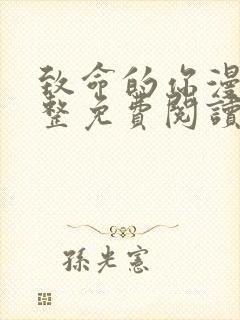 致命的你漫
整免費閱讀
孫光憲